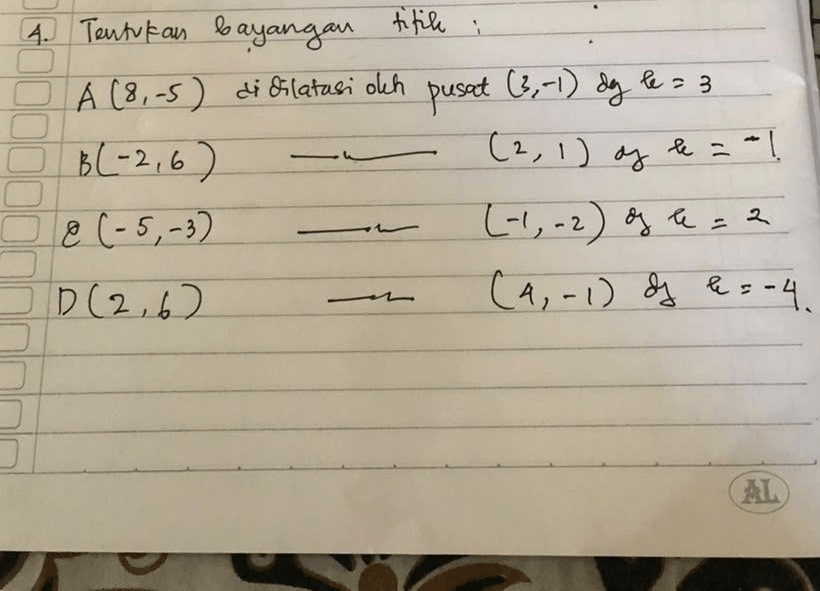 4. Tentukan bayangan titik :
A (8,-5) di dilatasi oleh pusat (3,-1) dg k = 3
B(-2,6) (2,1) dg k = -1.
C (-5,-3) (-1,-2) dg k = 2
D(2,6) (4,-1) dg k = -4.
AL